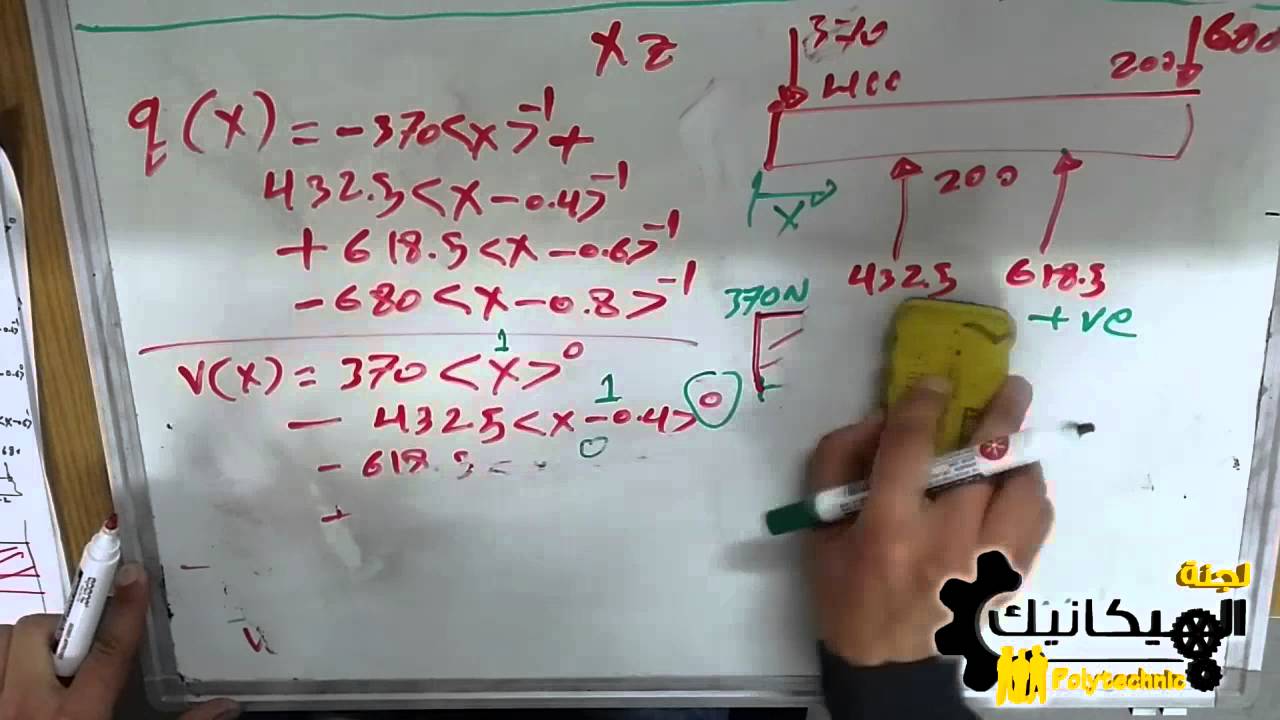 x z
q(x) = -370<x>⁻¹ +
432.5<x-0.4>⁻¹
+ 618.5<x-0.6>⁻¹
- 680<x-0.8>⁻¹
v(x) = 370<x>⁰
1
- 432.5<x-0.4>⁰
1
0
- 618.5<
+
370
680
400
200
200
x
432.5
618.5
370N
+ve
لجنة
الميكانيك
Polytechnic